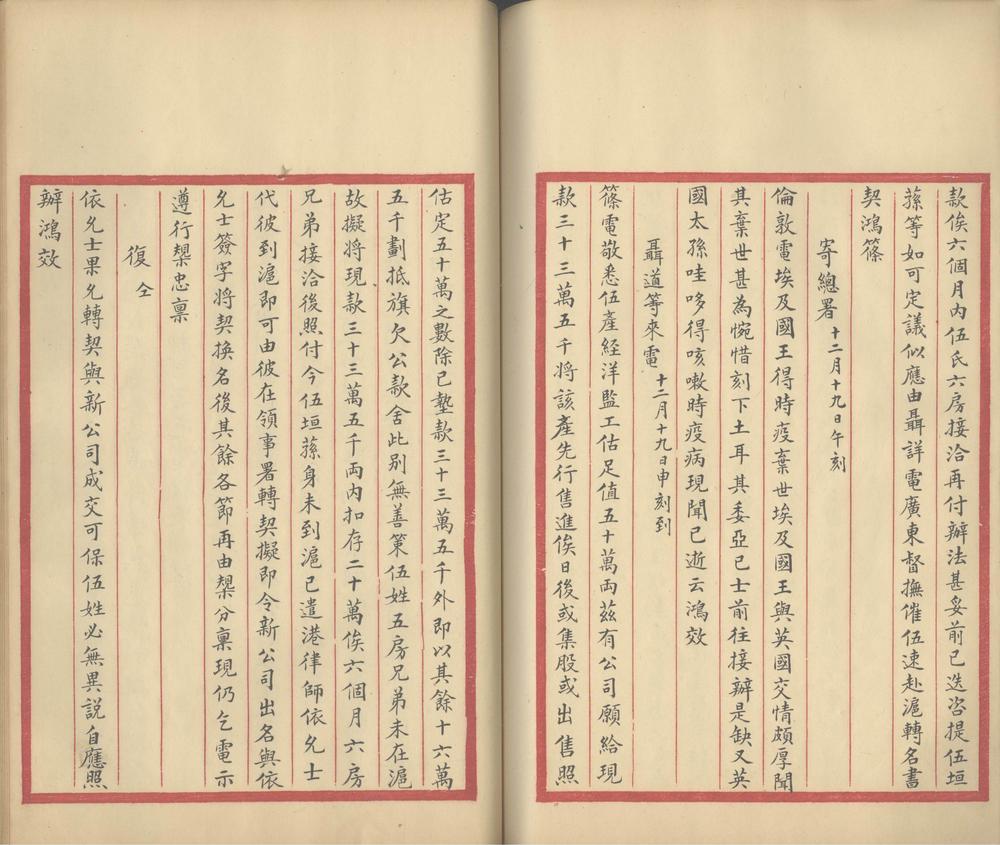 款俟六個月內伍氏六房接洽再付辦法甚妥前已迭咨提伍垣
蓀等如可定議似應由聶詳電廣東督撫催伍速赴滬轉名書
契鴻篠
寄總署十二月十九日午刻
倫敦電埃及國王得時疫棄世埃及國王與英國交情頗厚聞
其棄世甚為惋惜刻下土耳其委亞巳士前往接辦是缺又英
國太孫哇多得咳嗽時疫病現聞已逝云鴻效
聶道等來電十二月十九日申刻到
篠電敬悉伍產經洋監工估足值五十萬両茲有公司願給現
款三十三萬五千將該產先行售進俟日後或集股或出售照
估定五十萬之數除已墊款三十三萬五千外即以其餘十六萬
五千劃抵旗欠公款舍此別無善策伍姓五房兄弟未在滬
故擬將現款三十三萬五千両內扣存二十萬俟六個月六房
兄弟接洽後照付今伍垣蓀身未到滬已遣港律師依允士
代彼到滬即可由彼在領事署轉契擬即令新公司出名與依
允士簽字將契換名後其餘各節再由槼分稟現仍乞電示
遵行槼忠稟
復仝
依允士果允轉契與新公司成交可保伍姓必無異説自應照
辦鴻效